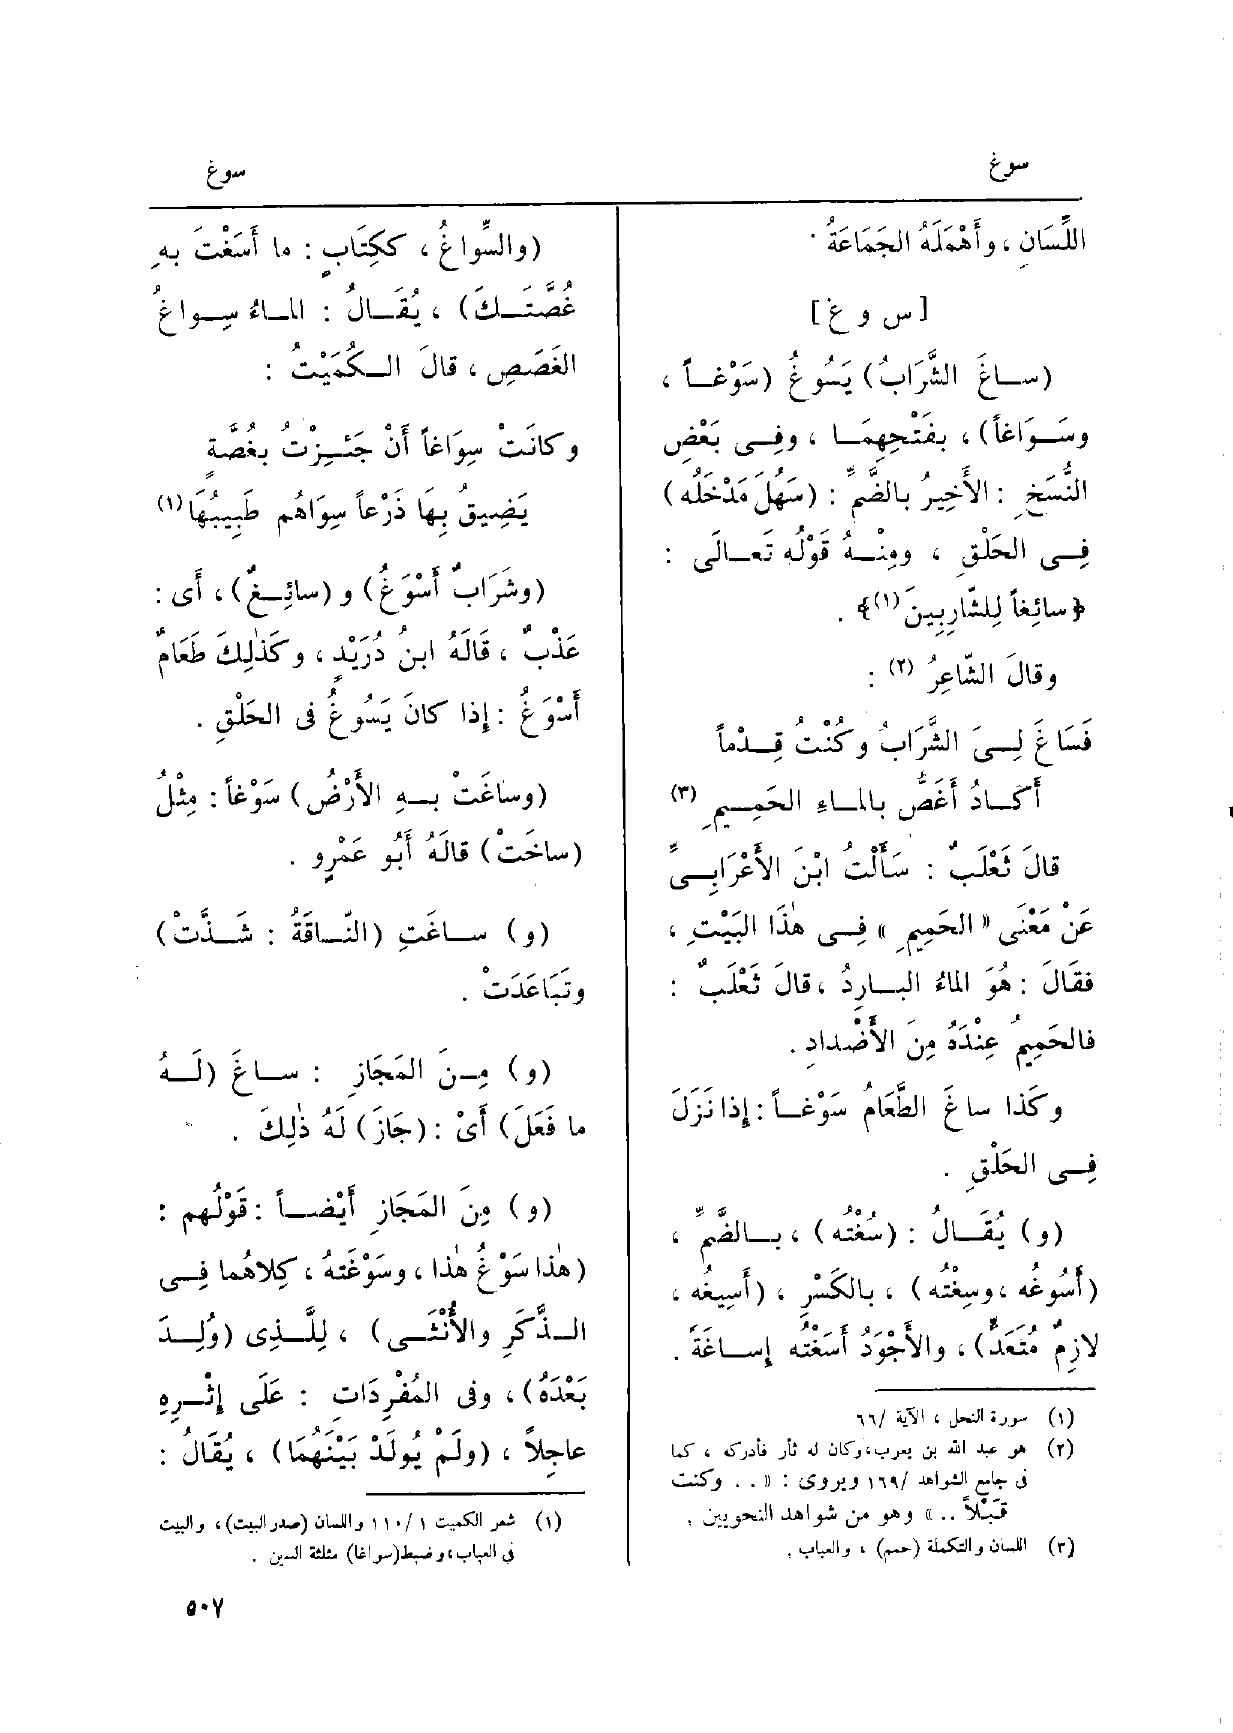 سوغ
سوغ
اللِّسَانِ ، وأَهْمَلَهُ الجَمَاعَةُ .
[ س و غ ]
(ســاغَ الشَّرَابُ) يَسُوغُ (سَوْغــاً ،
وسَــوَاغاً) ، بفَتْحِهِمَــا ، وفِــى بَعْضِ
النُّسَخِ : الأَخِيرُ بالضَّمِّ : (سَهُلَ مَدْخَلُه)
فِــى الحَلْقِ ، ومِنْــهُ قَوْلُه تَعــالَى :
﴿سائِغاً لِلشّارِبِينَ(١)﴾ .
وقالَ الشّاعِرُ (٢) :
فَسَاغَ لِــىَ الشَّرَابُ وكُنْتُ قِــدْماً
أَكــادُ أَغَصُّ بالمــاءِ الحَمِــيمِ (٣)
قالَ ثَعْلَبٌ : سَأَلْتُ ابْنَ الأَعْرَابِــىِّ
عَنْ مَعْنَى « الحَمِيمِ » فِــى هٰذا البَيْتِ ،
فقَالَ : هُوَ الماءُ البــارِدُ ، قالَ ثَعْلَبٌ :
فالحَمِيمُ عِنْدَهُ مِنَ الأَضْدادِ .
وكَذا ساغَ الطَّعَامُ سَوْغــاً : إِذا نَزَلَ
فِــى الحَلْقِ .
(و) يُقَــالُ : (سُغْتُه) ، بــالضَّمِّ ،
(أَسُوغُه ، وسِغْتُه) ، بالكَسْرِ ، (أَسِيغُه ،
لازِمٌ مُتَعَدٍّ) ، والأَجْوَدُ أَسَغْتُه إِســاغَةً .
(١) سورة النحل ، الآية /٦٦
(٢) هو عبد الله بن يعرب، وكان له ثأر فأدركه ، كما
فى جامع الشواهد /١٦٩ ويروى : « . . وكنت
قَبْلاً .. » وهو من شواهد النحويين .
(٣) اللسان والتكملة (حمم) ، والعباب .
(والسِّواغُ ، ككِتَابٍ : ما أَسَغْتَ بهِ
غُصَّتَــكَ) ، يُقَــالُ : المــاءُ سِــواغُ
الغَصَصِ ، قالَ الــكُمَيْتُ :
وكانَتْ سِوَاغاً أَنْ جَئِــزْتُ بغُصَّةٍ
يَضِيقُ بِهَا ذَرْعاً سِوَاهُم طَبِيبُهَا(١)
(وشَرَابٌ أَسْوَغُ) و (سائِــغٌ) ، أَى :
عَذْبٌ ، قالَهُ ابنُ دُرَيْدٍ ، وكَذٰلِكَ طَعَامٌ
أَسْوَغُ : إِذا كانَ يَسُوغُ فى الحَلْقِ .
(وسَاغَتْ بــهِ الأَرْضُ) سَوْغاً : مِثْلُ
(ساخَتْ) قالَهُ أَبُو عَمْرٍو .
(و) ســاغَتِ (النّــاقَةُ : شَــذَّتْ)
وتَبَاعَدَتْ .
(و) مِــنَ المَجَازِ : ســاغَ (لَــهُ
ما فَعَلَ) أَىْ : (جَازَ) لَهُ ذٰلِكَ .
(و) مِنَ المَجَازِ أَيْضــاً : قَوْلُهم :
(هٰذا سَوْغُ هٰذا ، وسَوْغَتُه ، كِلاهُما فِــى
الــذَّكَرِ والأُنْثَــى) ، لِلَّــذِى (وُلِــدَ
بَعْدَهُ) ، وفى المُفْرَدَاتِ : عَلَى إِثْــرِهِ
عاجِلاً ، (ولَمْ يُولَدْ بَيْنَهُمَا) ، يُقَالُ :
(١) شعر الكميت ١ /١١٠ واللسان (صدر البيت)، والبيت
فى العباب، وضبط (سواغا) مثلثة السين .
٥٠٧